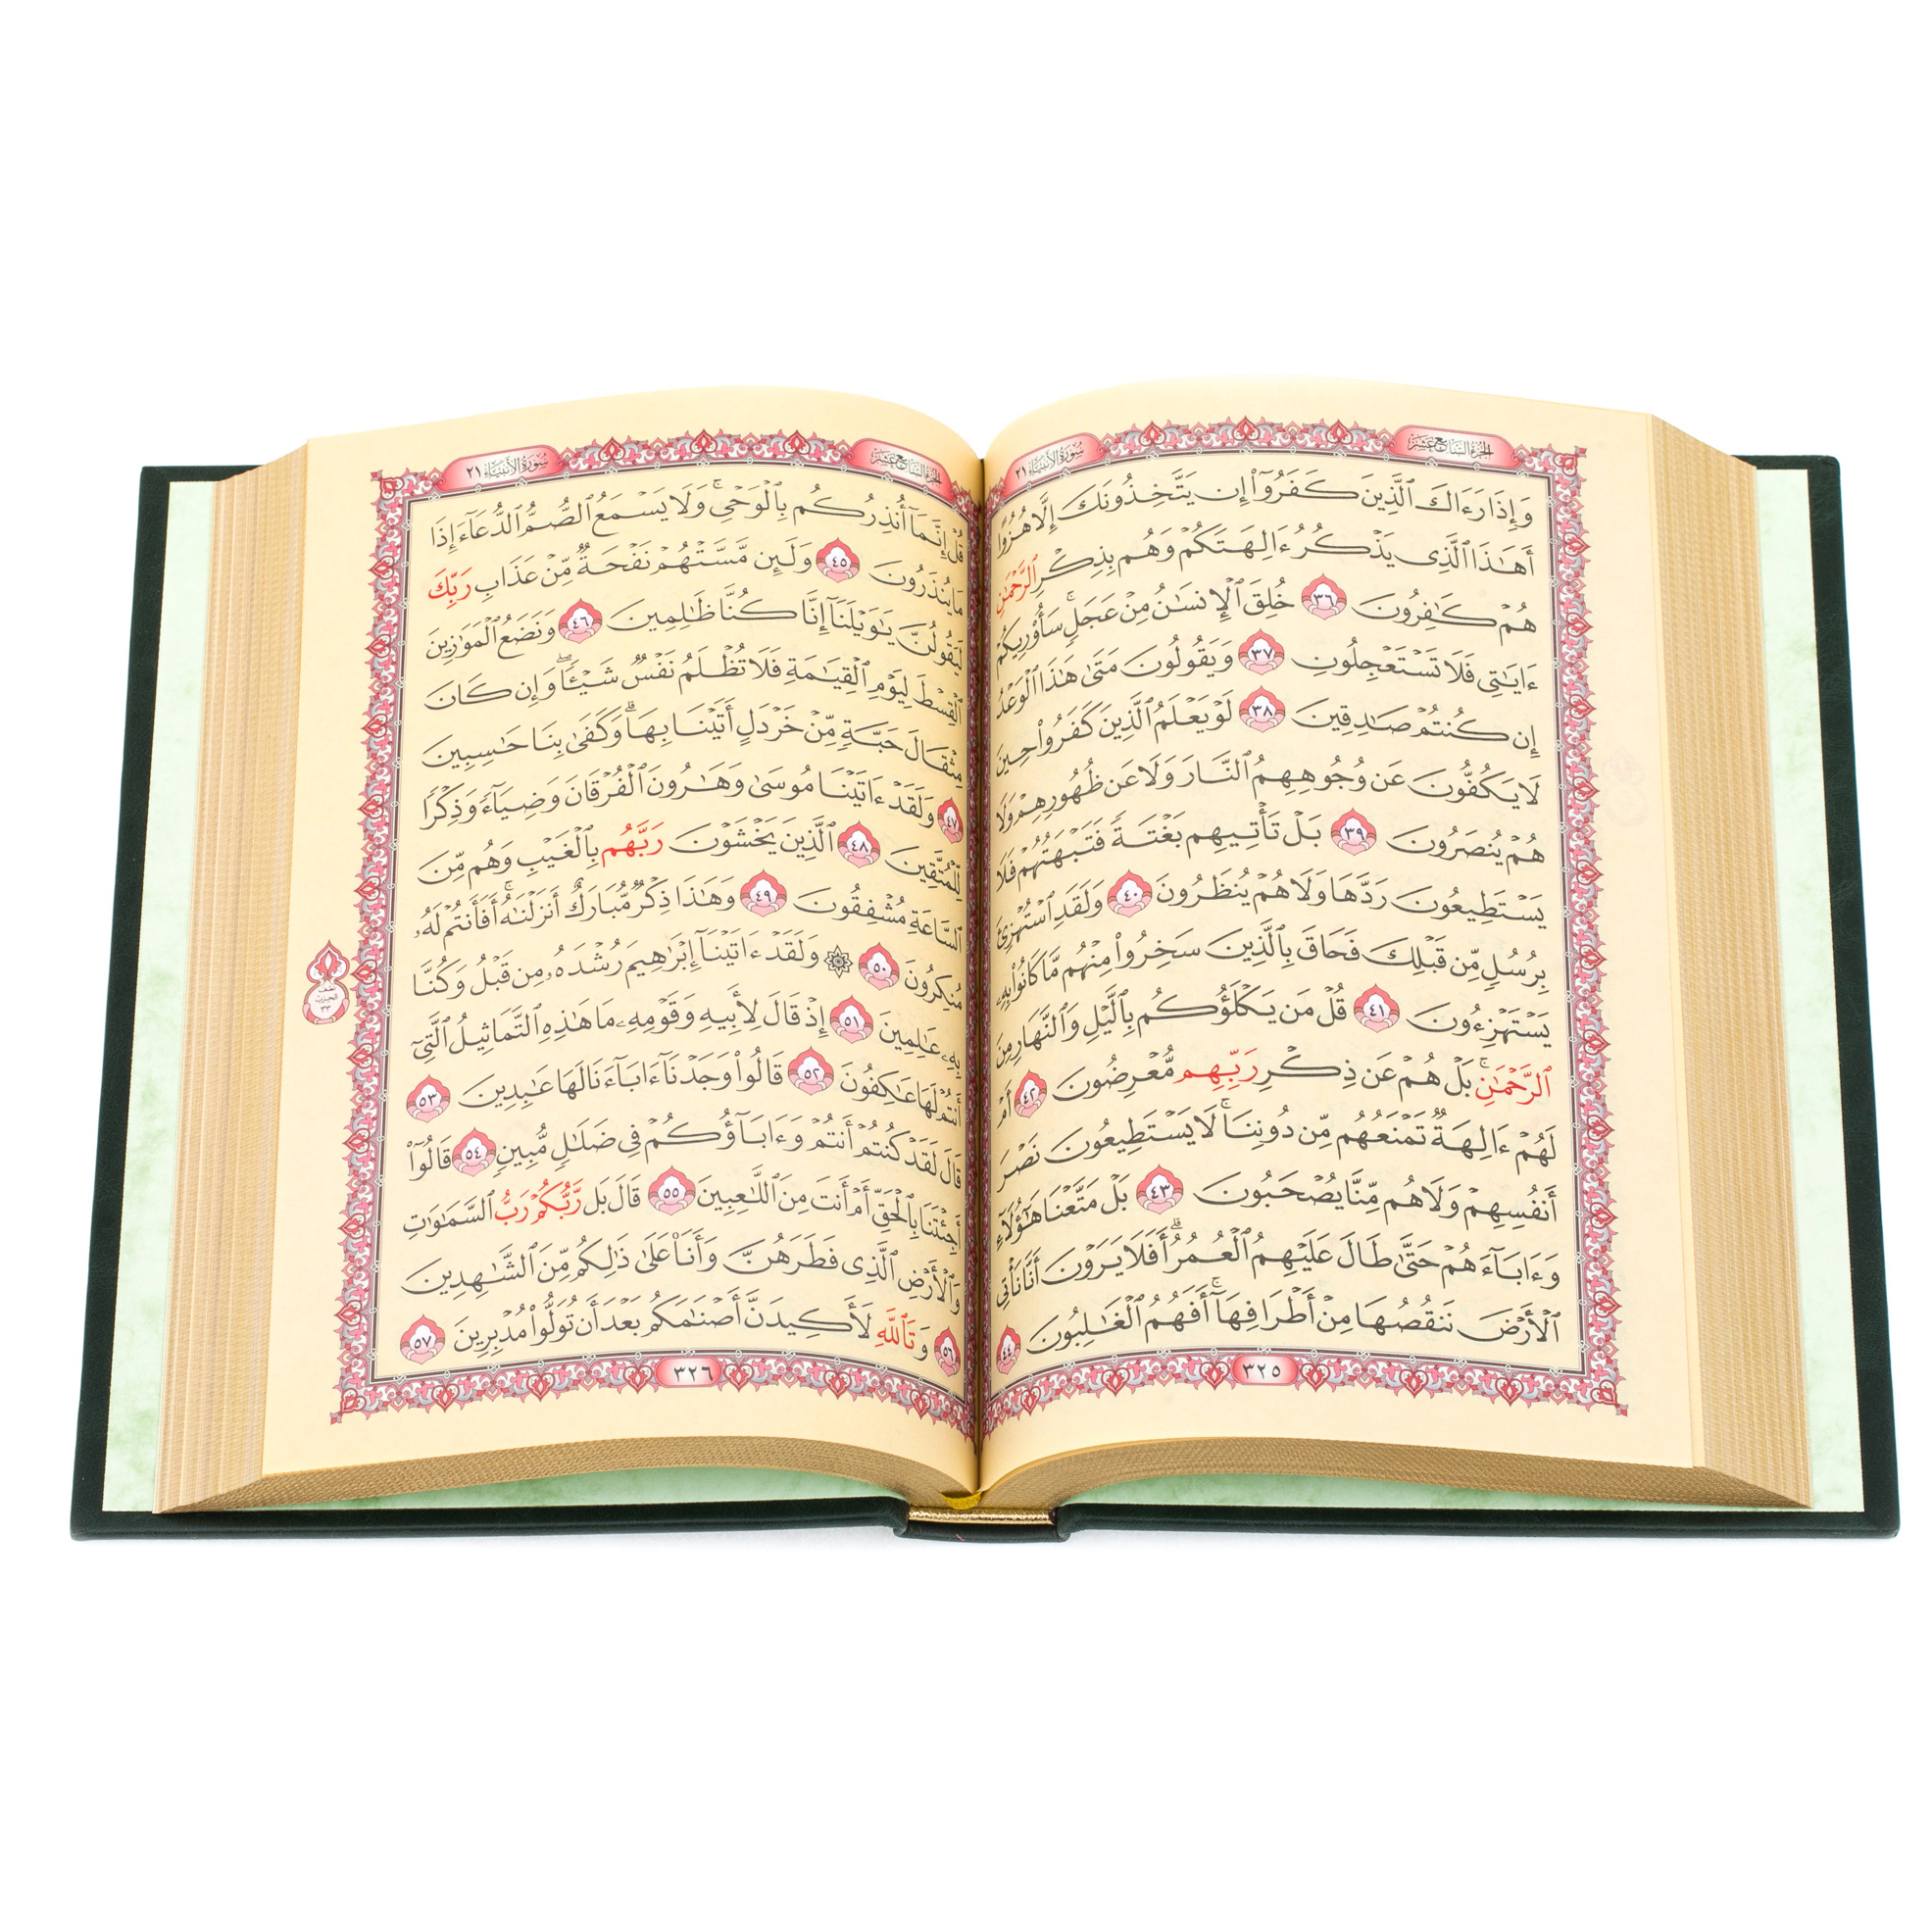 الجزء السابع عشر
سورة الأنبياء ٢١
وَإِذَا رَءَاكَ ٱلَّذِينَ كَفَرُوٓا۟ إِن يَتَّخِذُونَكَ إِلَّا هُزُوًا
أَهَـٰذَا ٱلَّذِى يَذْكُرُ ءَالِهَتَكُمْ وَهُم بِذِكْرِ ٱلرَّحْمَـٰنِ
هُمْ كَـٰفِرُونَ ٣٦ خُلِقَ ٱلْإِنسَـٰنُ مِنْ عَجَلٍ ۚ سَأُو۟رِيكُمْ
ءَايَـٰتِى فَلَا تَسْتَعْجِلُونِ ٣٧ وَيَقُولُونَ مَتَىٰ هَـٰذَا ٱلْوَعْدُ
إِن كُنتُمْ صَـٰدِقِينَ ٣٨ لَوْ يَعْلَمُ ٱلَّذِينَ كَفَرُوا۟ حِينَ
لَا يَكُفُّونَ عَن وُجُوهِهِمُ ٱلنَّارَ وَلَا عَن ظُهُورِهِمْ وَلَا
هُمْ يُنصَرُونَ ٣٩ بَلْ تَأْتِيهِم بَغْتَةً فَتَبْهَتُهُمْ فَلَا
يَسْتَطِيعُونَ رَدَّهَا وَلَا هُمْ يُنظَرُونَ ٤٠ وَلَقَدِ ٱسْتُهْزِئَ
بِرُسُلٍ مِّن قَبْلِكَ فَحَاقَ بِٱلَّذِينَ سَخِرُوا۟ مِنْهُم مَّا كَانُوا۟ بِهِۦ
يَسْتَهْزِءُونَ ٤١ قُلْ مَن يَكْلَؤُكُم بِٱلَّيْلِ وَٱلنَّهَارِ مِنَ
ٱلرَّحْمَـٰنِ ۚ بَلْ هُمْ عَن ذِكْرِ رَبِّهِم مُّعْرِضُونَ ٤٢ أَمْ
لَهُمْ ءَالِهَةٌ تَمْنَعُهُم مِّن دُونِنَا ۚ لَا يَسْتَطِيعُونَ نَصْرَ
أَنفُسِهِمْ وَلَا هُم مِّنَّا يُصْحَبُونَ ٤٣ بَلْ مَتَّعْنَا هَـٰٓؤُلَآءِ
وَءَابَآءَهُمْ حَتَّىٰ طَالَ عَلَيْهِمُ ٱلْعُمُرُ ۗ أَفَلَا يَرَوْنَ أَنَّا نَأْتِى
ٱلْأَرْضَ نَنقُصُهَا مِنْ أَطْرَافِهَآ ۚ أَفَهُمُ ٱلْغَـٰلِبُونَ ٤٤
٣٢٥
الجزء السابع عشر
سورة الأنبياء ٢١
قُلْ إِنَّمَآ أُنذِرُكُم بِٱلْوَحْىِ ۚ وَلَا يَسْمَعُ ٱلصُّمُّ ٱلدُّعَآءَ إِذَا
مَا يُنذَرُونَ ٤٥ وَلَئِن مَّسَّتْهُمْ نَفْحَةٌ مِّنْ عَذَابِ رَبِّكَ
لَيَقُولُنَّ يَـٰوَيْلَنَآ إِنَّا كُنَّا ظَـٰلِمِينَ ٤٦ وَنَضَعُ ٱلْمَوَٰزِينَ
ٱلْقِسْطَ لِيَوْمِ ٱلْقِيَـٰمَةِ فَلَا تُظْلَمُ نَفْسٌ شَيْـًٔا ۖ وَإِن كَانَ
مِثْقَالَ حَبَّةٍ مِّنْ خَرْدَلٍ أَتَيْنَا بِهَا ۗ وَكَفَىٰ بِنَا حَـٰسِبِينَ
٤٧ وَلَقَدْ ءَاتَيْنَا مُوسَىٰ وَهَـٰرُونَ ٱلْفُرْقَانَ وَضِيَآءً وَذِكْرًا
لِّلْمُتَّقِينَ ٤٨ ٱلَّذِينَ يَخْشَوْنَ رَبَّهُم بِٱلْغَيْبِ وَهُم مِّنَ
ٱلسَّاعَةِ مُشْفِقُونَ ٤٩ وَهَـٰذَا ذِكْرٌ مُّبَارَكٌ أَنزَلْنَـٰهُ ۚ أَفَأَنتُمْ لَهُۥ
مُنكِرُونَ ٥٠ ۞ وَلَقَدْ ءَاتَيْنَآ إِبْرَٰهِيمَ رُشْدَهُۥ مِن قَبْلُ وَكُنَّا
بِهِۦ عَـٰلِمِينَ ٥١ إِذْ قَالَ لِأَبِيهِ وَقَوْمِهِۦ مَا هَـٰذِهِ ٱلتَّمَاثِيلُ ٱلَّتِىٓ
أَنتُمْ لَهَا عَـٰكِفُونَ ٥٢ قَالُوا۟ وَجَدْنَآ ءَابَآءَنَا لَهَا عَـٰبِدِينَ ٥٣
قَالَ لَقَدْ كُنتُمْ أَنتُمْ وَءَابَآؤُكُمْ فِى ضَلَـٰلٍ مُّبِينٍ ٥٤ قَالُوٓا۟
أَجِئْتَنَا بِٱلْحَقِّ أَمْ أَنتَ مِنَ ٱللَّـٰعِبِينَ ٥٥ قَالَ بَل رَّبُّكُمْ رَبُّ ٱلسَّمَـٰوَٰتِ
وَٱلْأَرْضِ ٱلَّذِى فَطَرَهُنَّ وَأَنَا۠ عَلَىٰ ذَٰلِكُم مِّنَ ٱلشَّـٰهِدِينَ
٥٦ وَتَٱللَّهِ لَأَكِيدَنَّ أَصْنَـٰمَكُم بَعْدَ أَن تُوَلُّوا۟ مُدْبِرِينَ ٥٧
٣٢٦
نصف
الحزب
٣٣